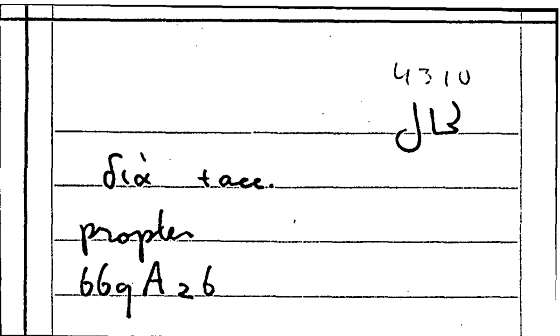 4310
JB
διὰ +acc.
propter
669 A 26